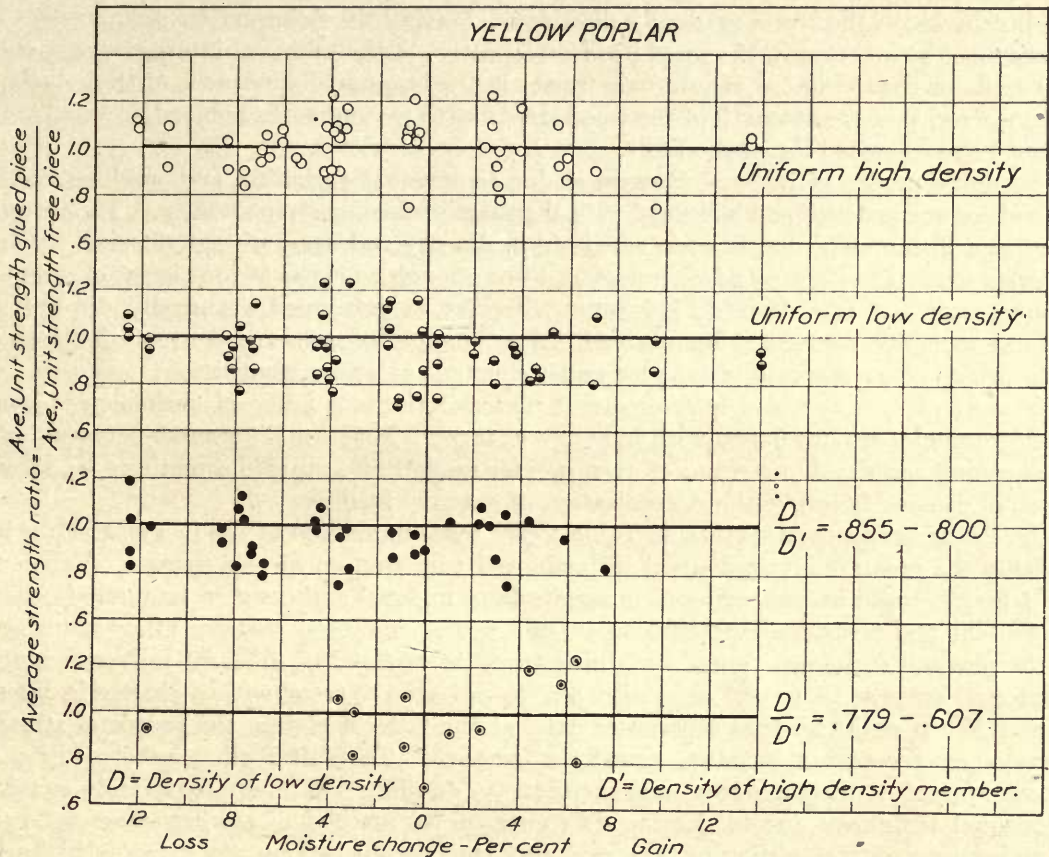 YELLOW POPLAR
Average strength ratio = Ave. Unit strength glued piece
Ave. Unit strength free piece
1.2
1.0
.8
.6
Uniform high density
1.2
1.0
.8
.6
Uniform low density
1.2
1.0
.8
.6
D
D' = .855 - .800
1.2
1.0
.8
.6
D
D' = .779 - .607
D = Density of low density
D' = Density of high density member.
12 8 4 0 4 8 12
Loss Moisture change - Per cent Gain